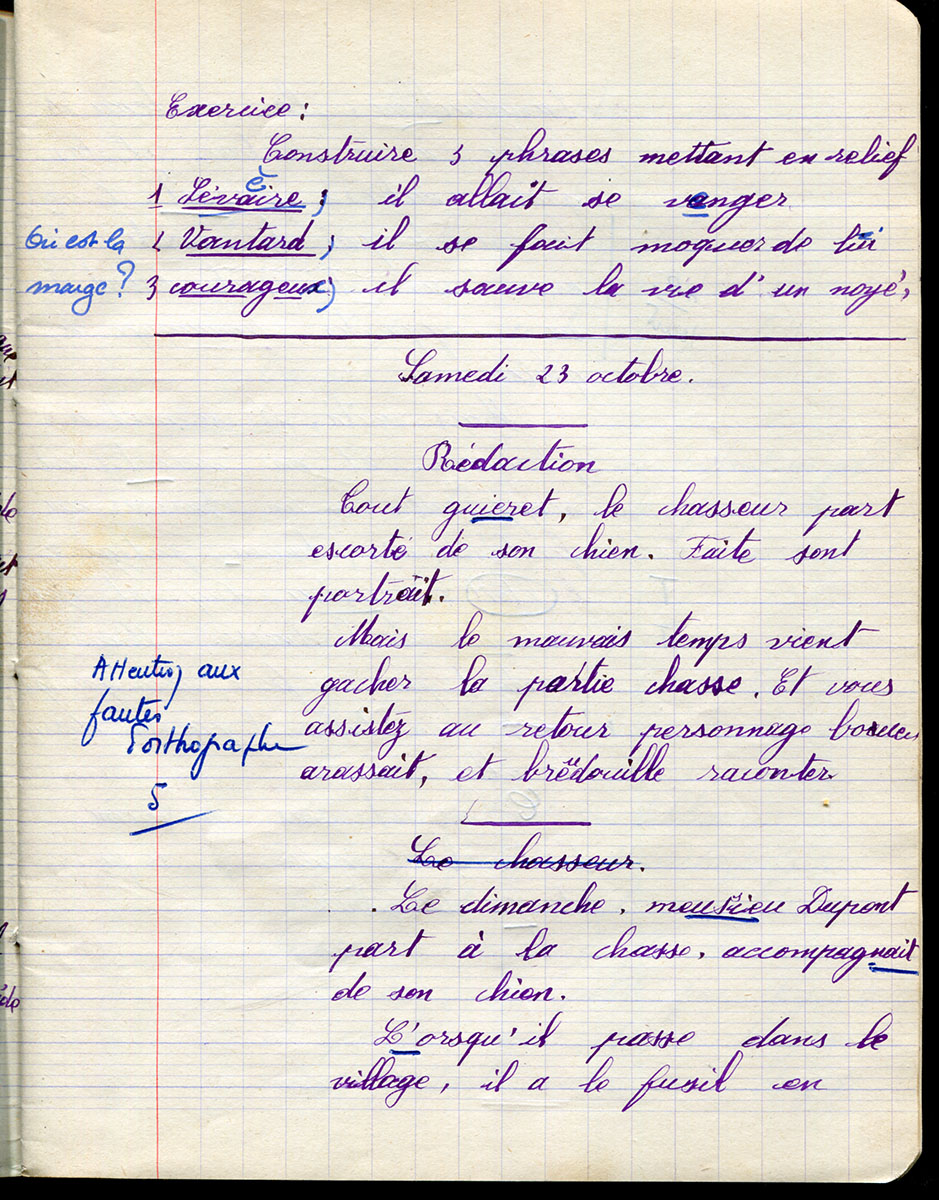 Exercice :
Construire 3 phrases mettant en relief
1 Sévaire ; il allait se vanger
è
e
Où est la
marge ?
2 Vantard ; il se fait moquer de lui
3 courageux ; il sauve la vie d'un noyé,
Samedi 23 octobre.
Rédaction
Tout guieret, le chasseur part
escorté de son chien. Faite sont
portrait.
Mais le mauvais temps vient
gacher la partie chasse. Et vous
assistez au retour personnage
arassait, et brëdouille raconter
Attention aux
fautes
d'orthographe
5
Le chasseur.
Le dimanche, meusieu Dupont
part à la chasse, accompagnait
de son chien.
L'orsqu'il passe dans le
village, il a le fusil en